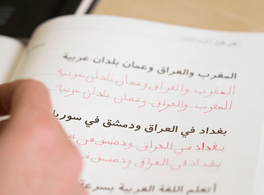 المغرب والعراق وعمان بلدان عربية
المغرب والعراق وعمان بلدان عربية
المغرب والعراق وعمان بلدان عربية
بغداد في العراق ودمشق في سوريا
بغداد في العراق ودمشق في
بغداد في العراق ودمشق في
أتعلم اللغة العربية بسرعة